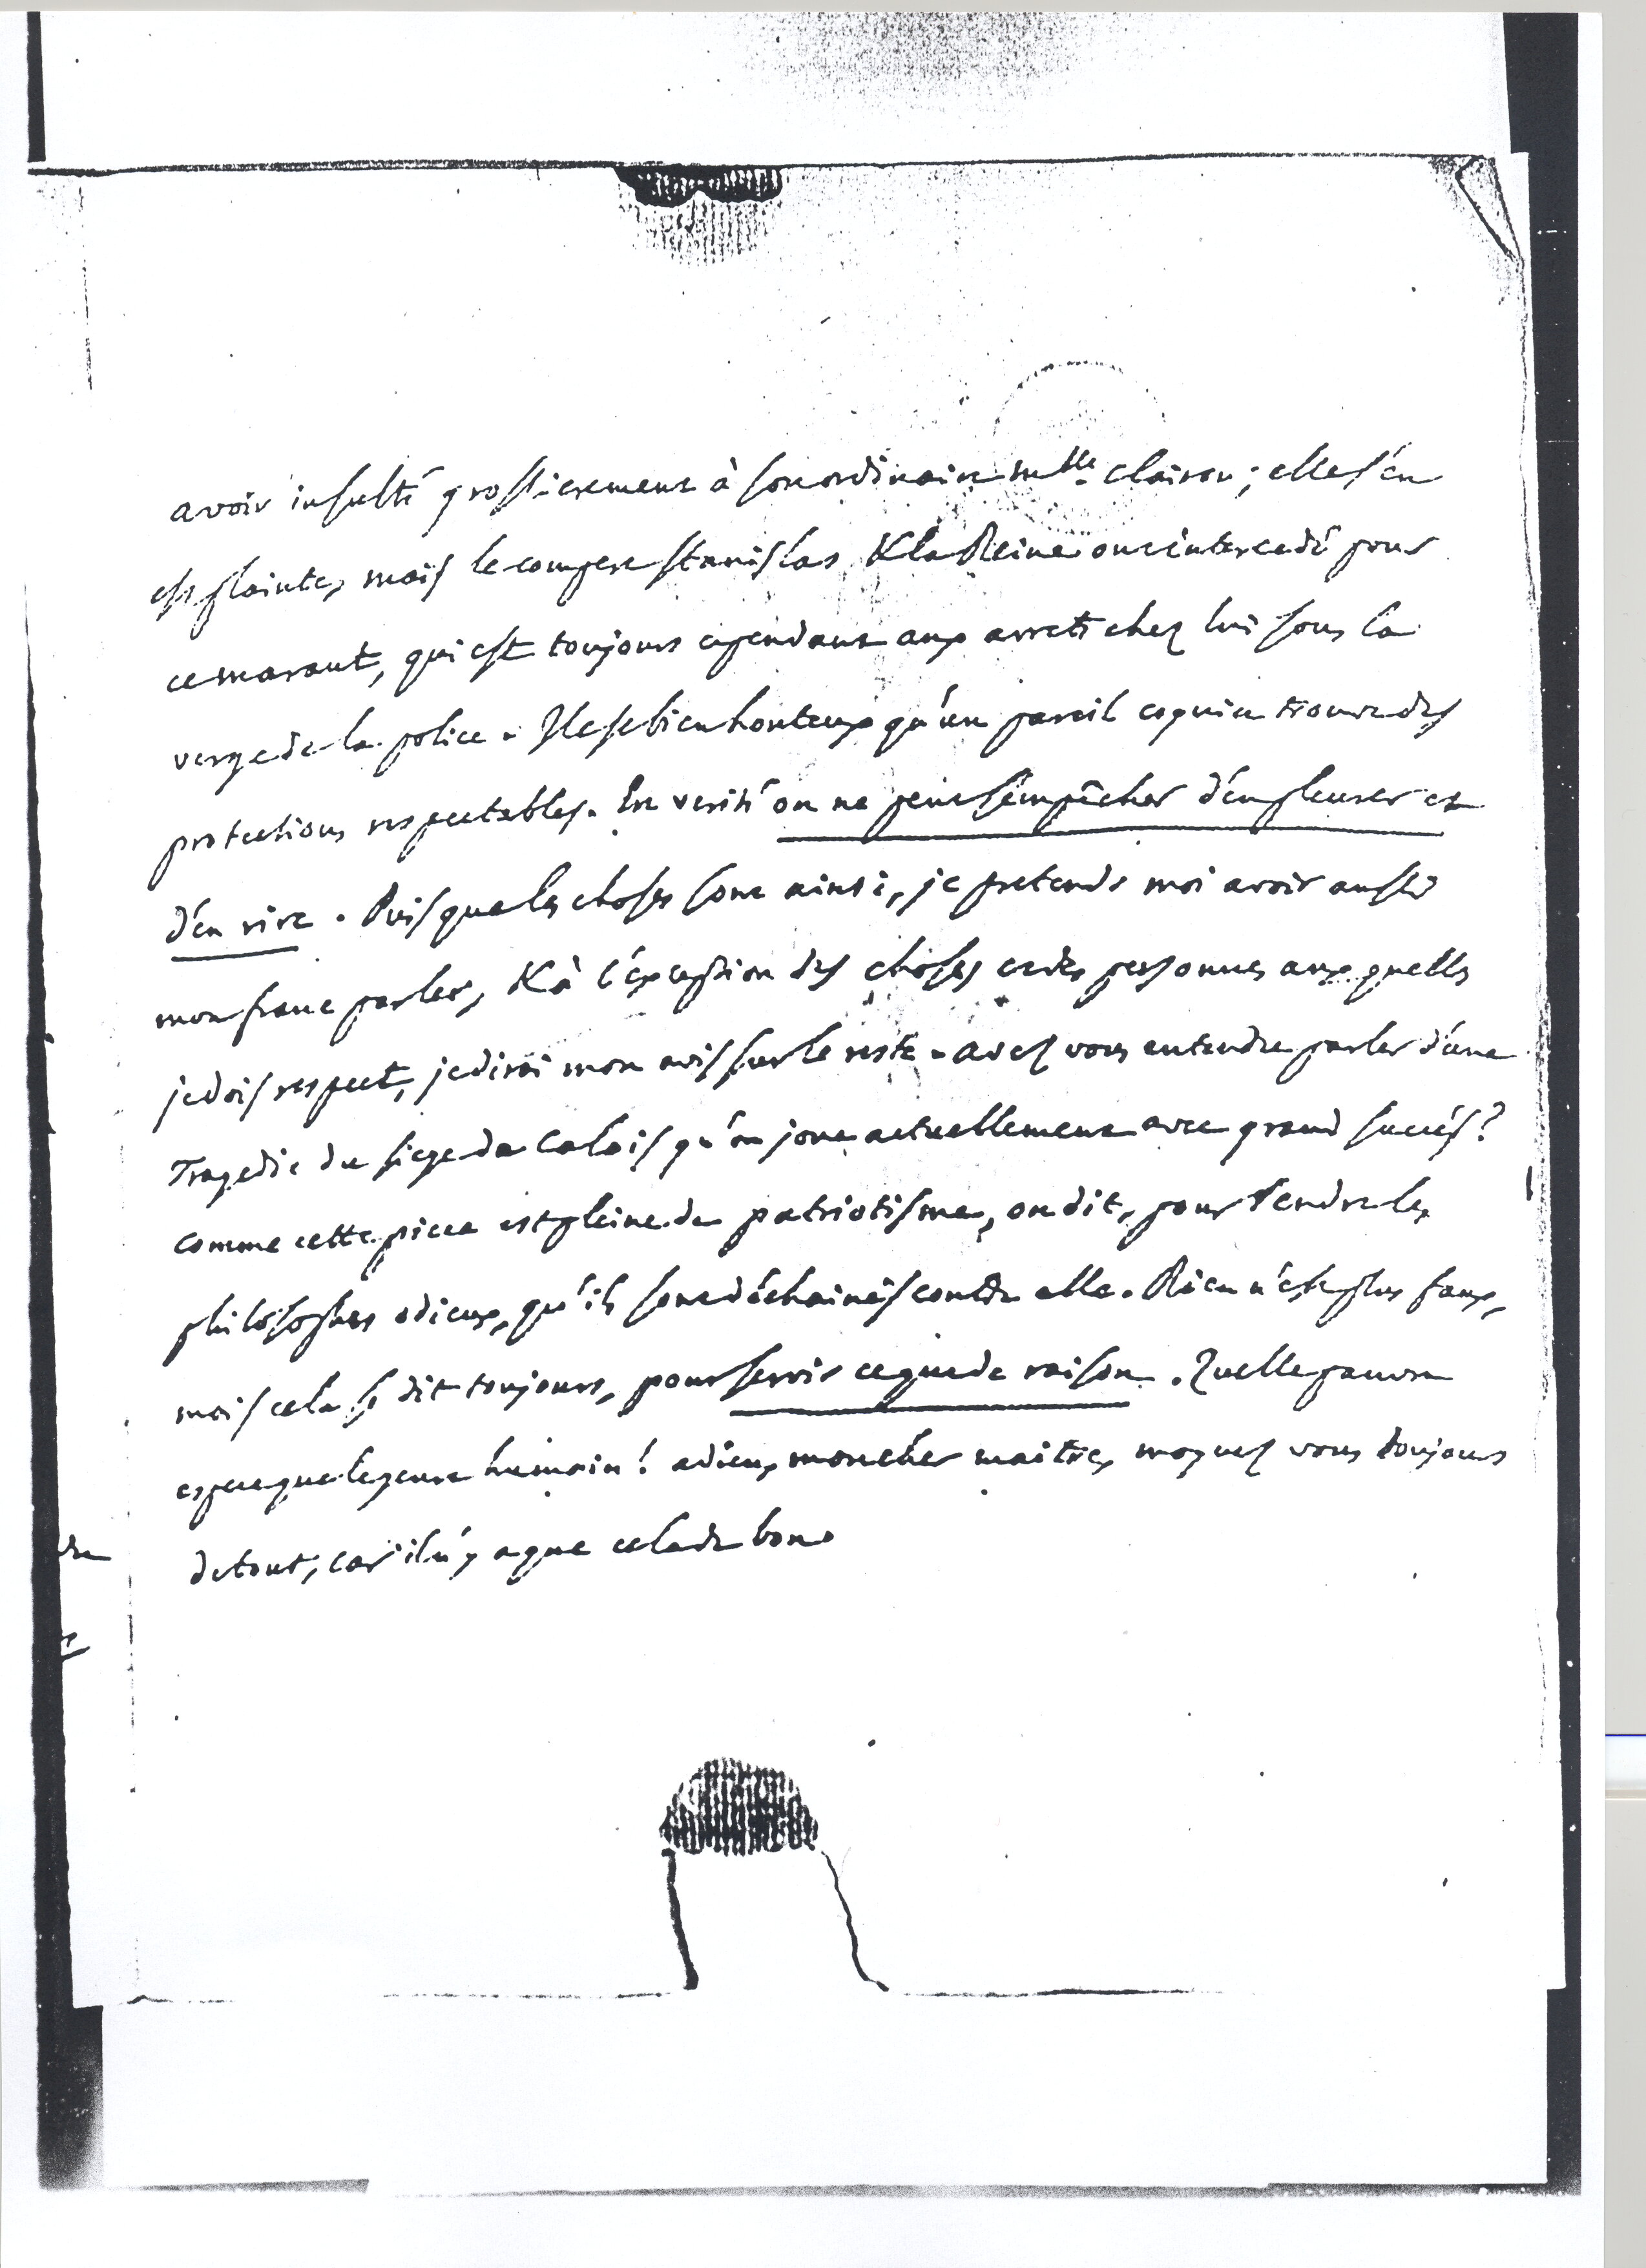 avoir insulté grossierement à son ordinaire Mlle. Clairon; elle s'en
est plainte, mais le compere Stanislas & la Reine ont intercedé pour
ce maraut, qui est toujours cependant aux arrets chez lui sous la
verge de la police. Il est bien honteux qu'un pareil coquin trouve des
protections respectables. En verité on ne peut s'empêcher d'en pleurer et
d'en rire. Puisque les choses sont ainsi, je pretends moi avoir aussi
mon franc parler, & à l'exception des choses et des personnes aux quelles
je dois respect, je dirai mon avis sur le reste. avez vous entendu parler d'une
Tragedie du siege de Calais qu'on joue actuellement avec grand succés?
comme cette piece est pleine de patriotisme, on dit, pour rendre les
philosophes odieux, qu'ils sont déchainés contre elle. Rien n'est plus faux,
mais cela se dit toujours, pour servir ce que de raison. Quelle pauvre
espece que le genre humain! adieu, mon cher maitre, moquez vous toujours
de tout, car il n'y a que cela de bon.